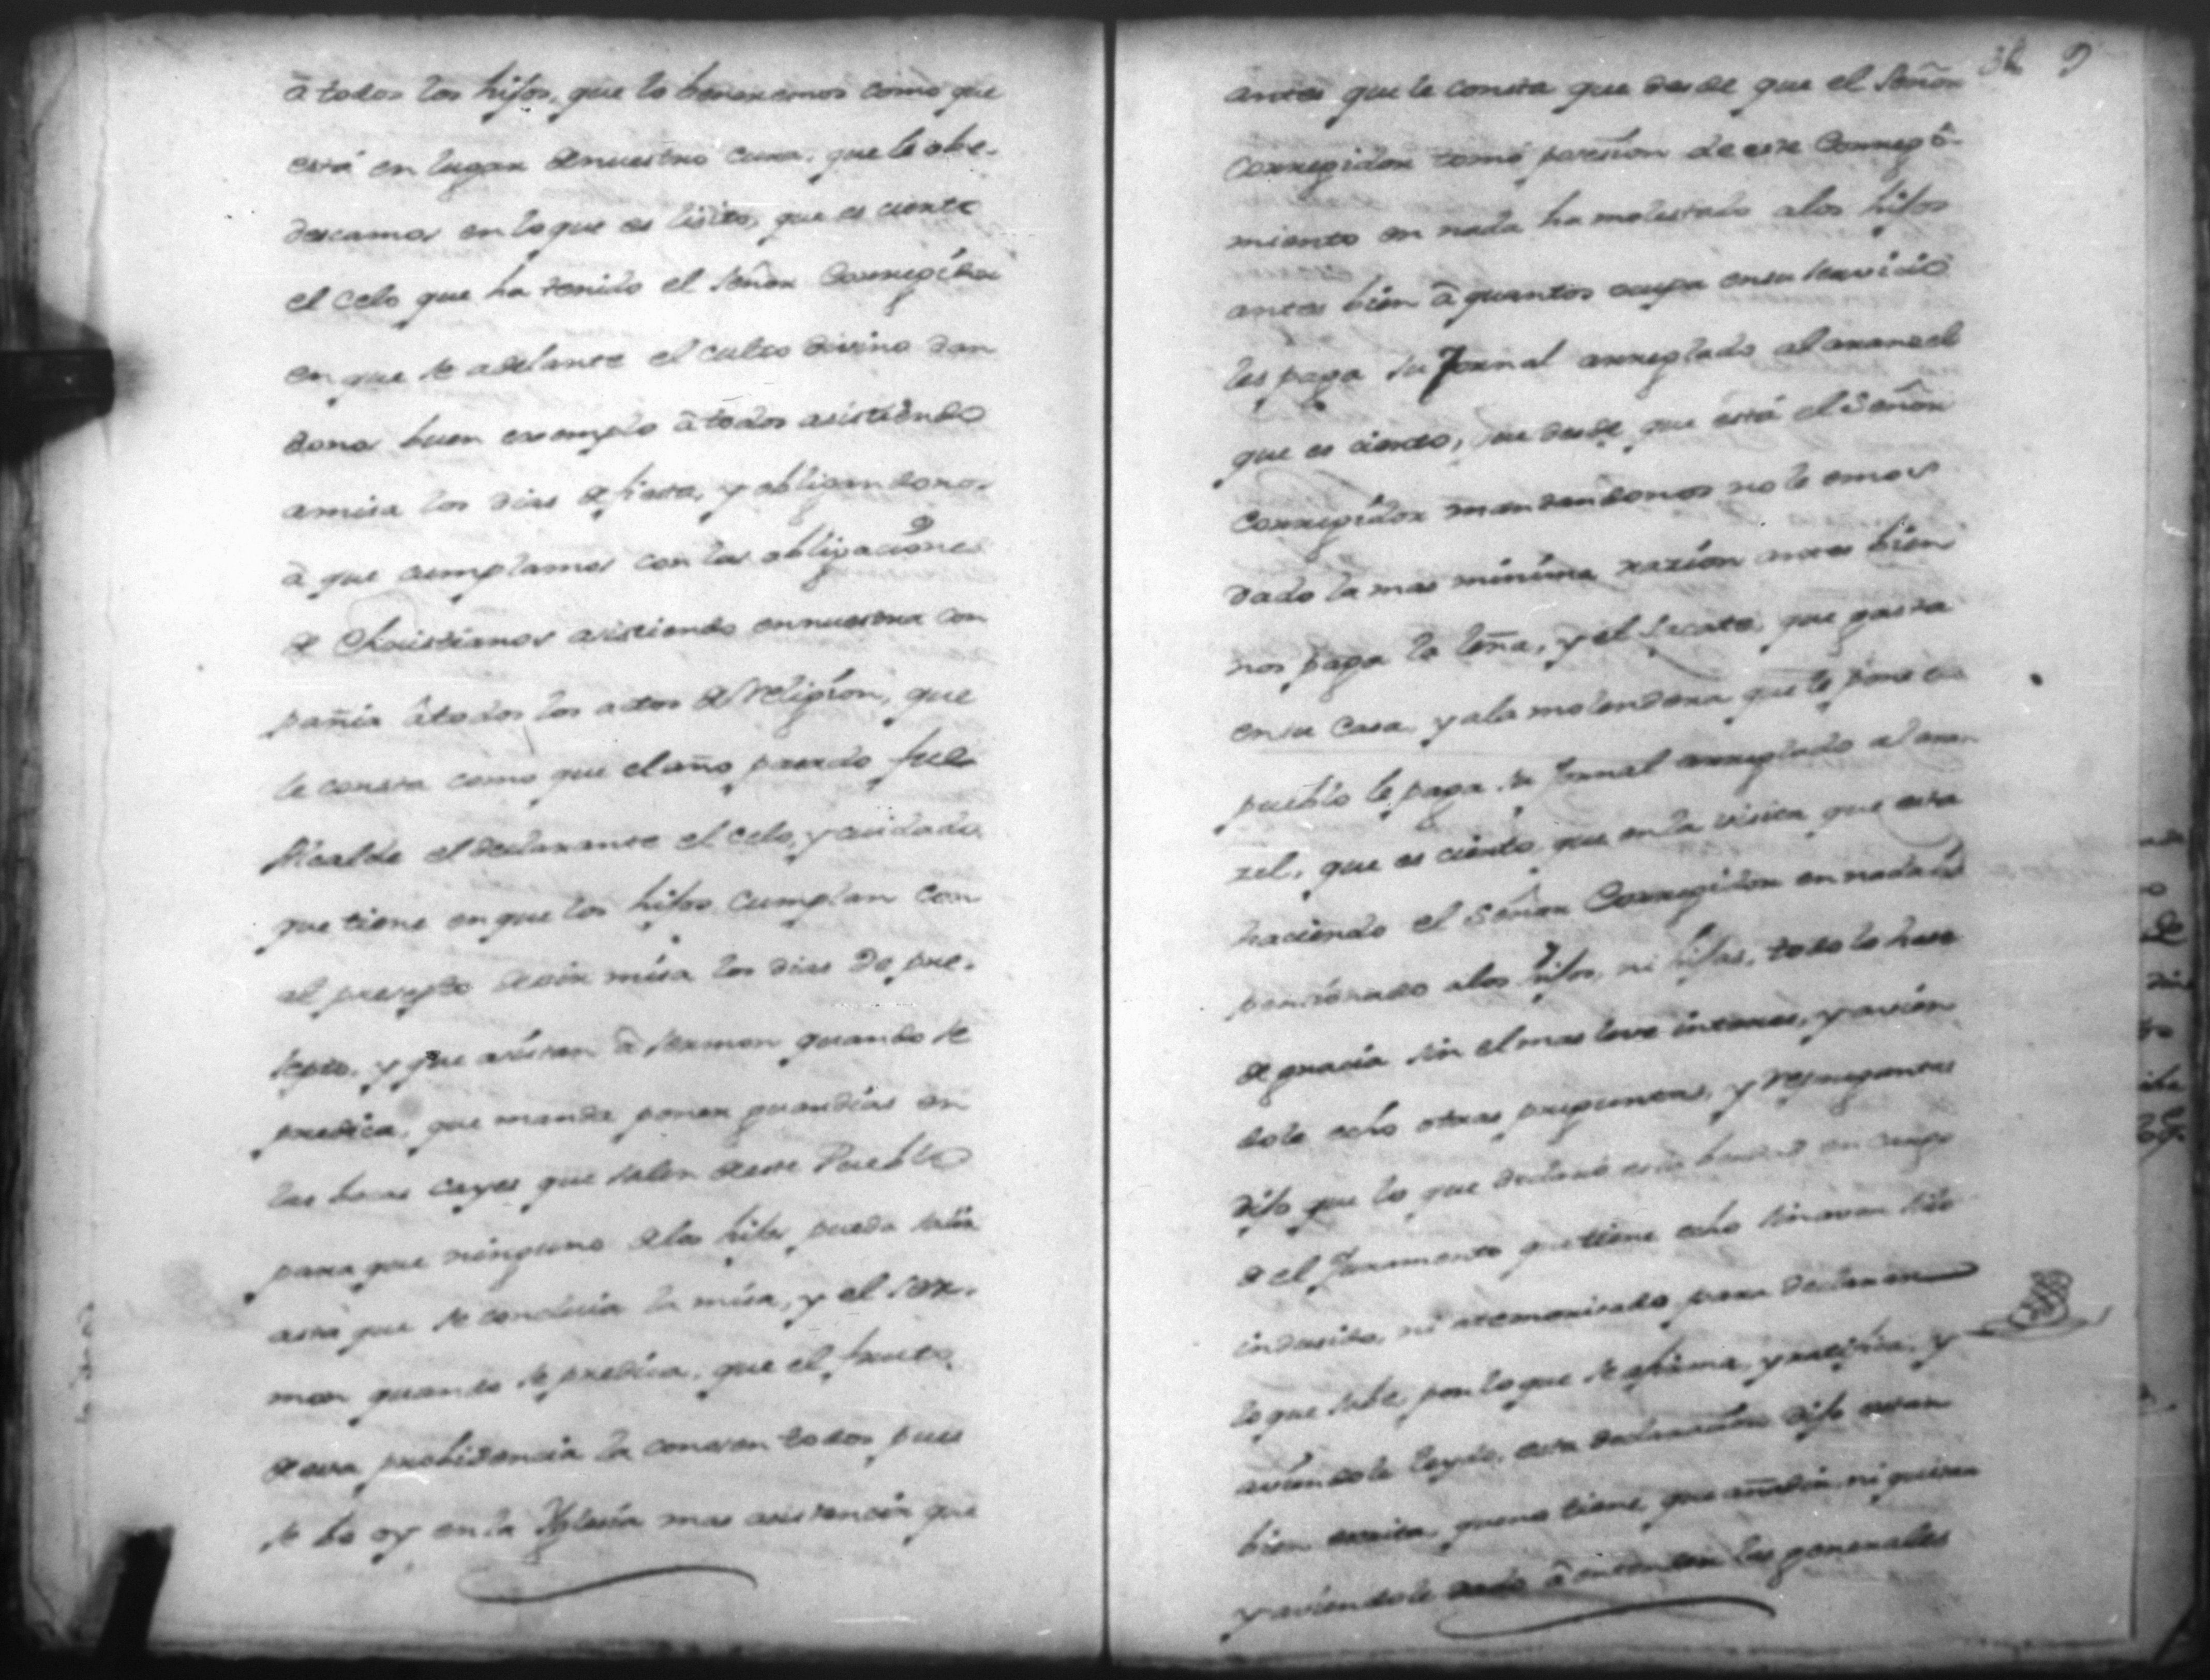 â todos los hijos, que lo beneremos como que
está en lugar de nuestro cura, que le obe-
descamos en lo que es lisito, que es cierto
el celo que ha tenido el Señor Corregidor
en que se adelante el culto divino dan
donos buen exemplo â todos asistiendo
a misa los dias de fiesta, y obligandonos
â que cumplamos con las obligaciones
de Christianos asistiendo en nuestra con
pañia â todos los actos de religion, que
le consta como que el año pasado fue
Alcalde el declarante el celo, y cuidado
que tiene en que los hijos cumplan con
el presepto de oir misa los dias de pre-
septo, y que asistan â sermon quando se
predica, que manda poner guardias en
las bocas cayes que salen de este Pueblo
para que ninguno de los hijos pueda salir
asta que se concluia la misa, y el ser-
mon quando se predica, que el fruto
de esta probidencia la conosen todos pues
se be oy en la Yglesia mas asistencia que
36 9
antes que le consta que desde que el Señor
Corregidor tomó posesion de este Corregi-
miento en nada ha molestado a los hijos
antes bien â quantos ocupa en su servicio
les paga su Jornal arreglado al aransel
que es cierto, que desde que está el Señor
Corregidor mandandonos no le emos
dado la mas minima razion antes bien
nos paga la leña, y el sacate que gasta
en su casa, y a la molendera que le pone el
pueblo le paga su Jornal arreglado al aran-
zel, que es cierto que en la visita que esta
haciendo el Señor Corregidor en nada ha
pensionado a los hijos, ni hijas, todo lo hase
de gracia sin el mas leve interes, y avien
dole echo otras preguntas, y repreguntas
dijo que lo que declaró es la berdad en cargo
de el Juramento que tiene echo sin aver sido
indusido, ni atemorisado para declarar
lo que sabe, por lo que se afirma, y ratifica, y
aviendole leydo, esta declarasion dijo estar
bien escrita, que no tiene que añadir ni quitar
y aviendole dado â entender las generalles